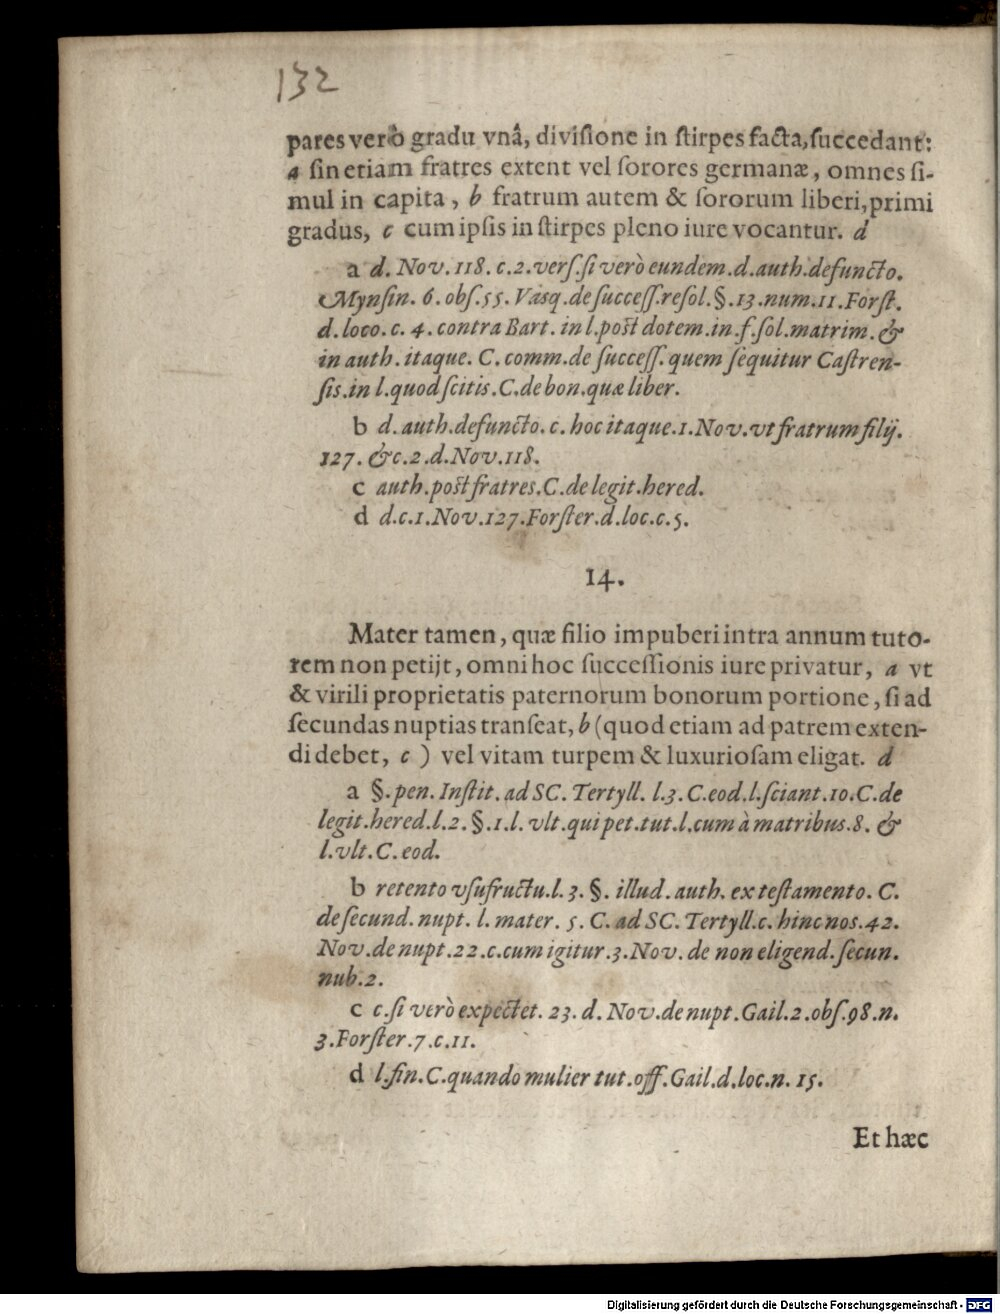 132
pares verò gradu vnâ, diviſione in ſtirpes facta, ſuccedant:
a ſin etiam fratres extent vel ſorores germanæ, omnes ſi-
mul in capita, b fratrum autem & ſororum liberi, primi
gradus, c cum ipſis in ſtirpes pleno iure vocantur. d
a d. Nov. 118. c. 2. verſ. ſi verò eundem. d. auth. defuncto.
Mynſin. 6. obſ. 55. Vasq. de ſucceſſ. reſol. §. 13. num. 11. Forſt.
d. loco. c. 4. contra Bart. in l. poſt dotem. in. f. ſol. matrim. &
in auth. itaque. C. comm. de ſucceſſ. quem ſequitur Caſtren-
ſis. in l. quod ſcitis. C. de bon. quæ liber.
b d. auth. defuncto. c. hoc itaque. 1. Nov. vt fratrum filij.
127. & c. 2. d. Nov. 118.
c auth. poſt fratres. C. de legit. hered.
d d. c. 1. Nov. 127. Forſter. d. loc. c. 5.
14.
Mater tamen, quæ filio impuberi intra annum tuto-
rem non petijt, omni hoc ſucceſſionis iure privatur, a vt
& virili proprietatis paternorum bonorum portione, ſi ad
ſecundas nuptias tranſeat, b (quod etiam ad patrem exten-
di debet, c ) vel vitam turpem & luxurioſam eligat. d
a §. pen. Inſtit. ad SC. Tertyll. l. 3. C. eod. l. ſciant. 10. C. de
legit. hered. l. 2. §. 1. l. vlt. qui pet. tut. l. cum à matribus. 8. &
l. vlt. C. eod.
b retento vſufructu. l. 3. §. illud. auth. ex teſtamento. C.
de ſecund. nupt. l. mater. 5. C. ad SC. Tertyll. c. hinc nos. 42.
Nov. de nupt. 22. c. cum igitur. 3. Nov. de non eligend. ſecun.
nub. 2.
c c. ſi verò expectet. 23. d. Nov. de nupt. Gail. 2. obſ. 98. n.
3. Forſter. 7. c. 11.
d l. fin. C. quando mulier tut. off. Gail. d. loc. n. 15.
Et hæc
Digitalisierung gefördert durch die Deutsche Forschungsgemeinschaft - DFG